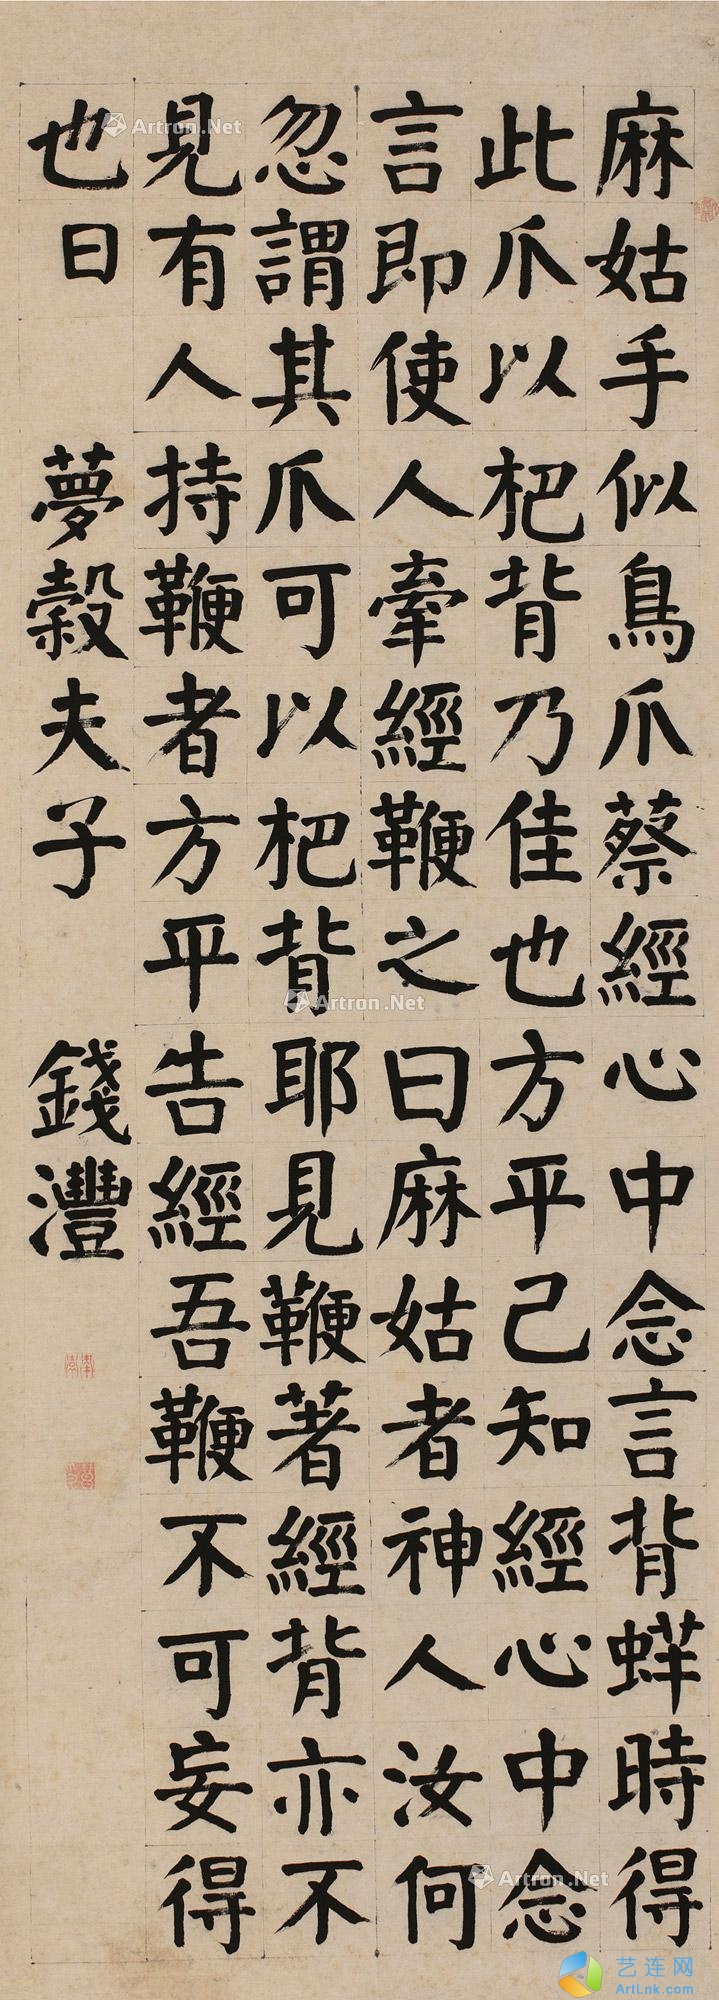 麻姑手似鳥爪蔡經心中念言背蛘時得
此爪以杷背乃佳也方平已知經心中念
言即使人牽經鞭之曰麻姑者神人汝何
忽謂其爪可以杷背耶見鞭著經背亦不
見有人持鞭者方平告經吾鞭不可妄得
也日 夢穀夫子 錢灃
Artron.Net
Artron.Net
Artron.Net
艺连网
ArtLnk.com